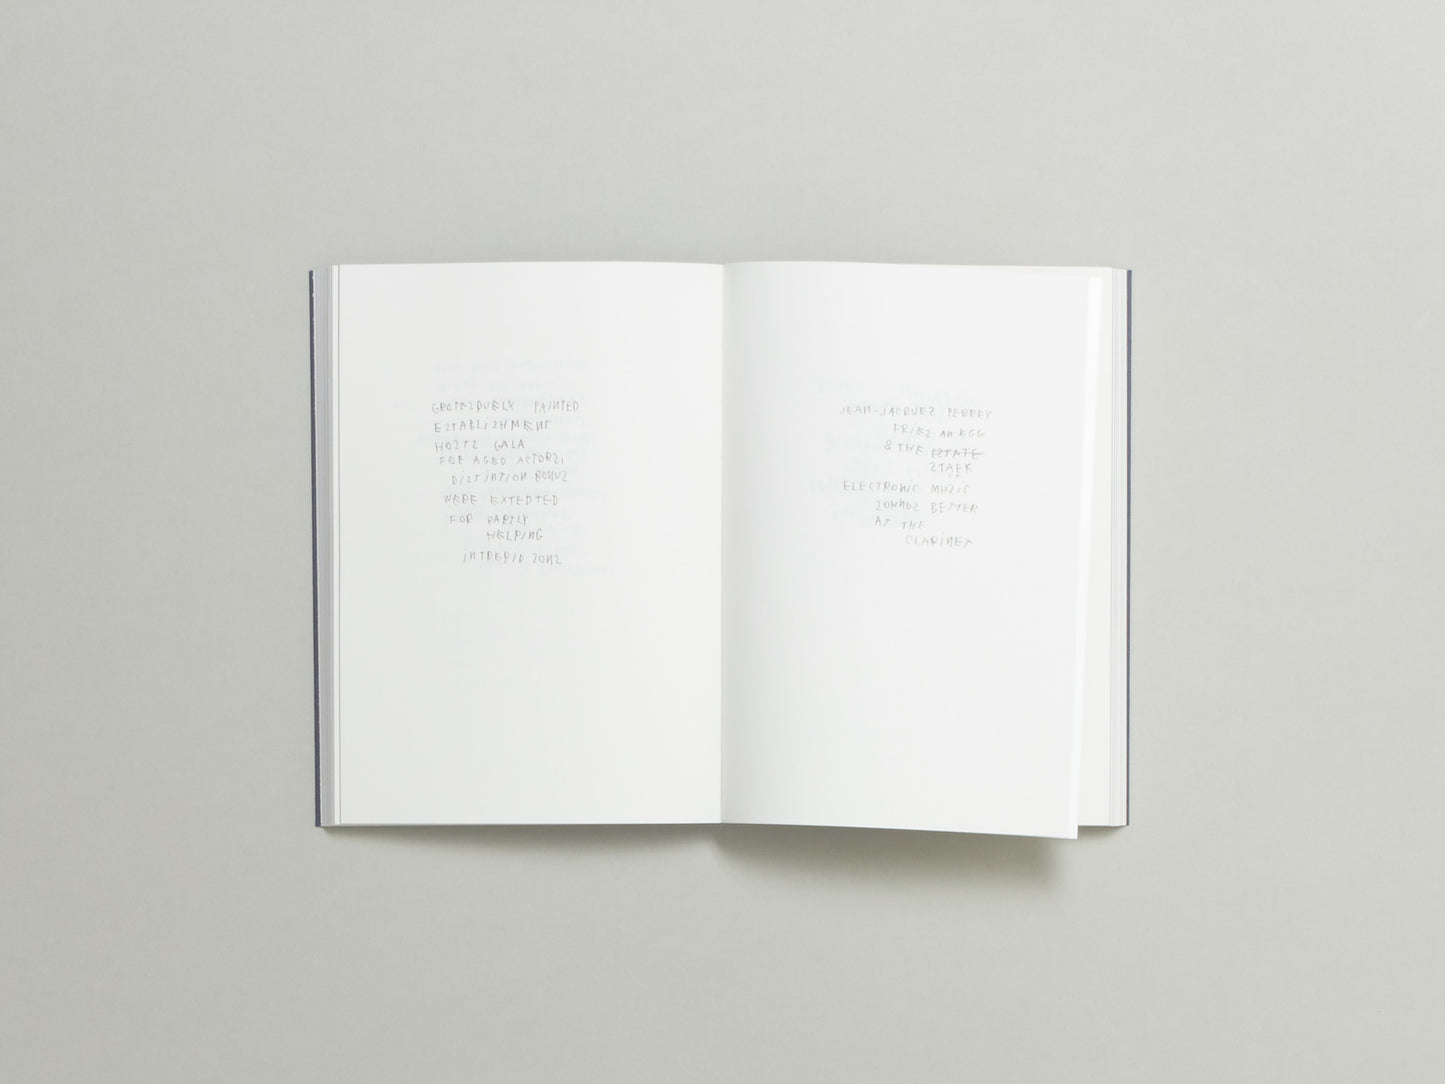 GROTESQUELY PAINTED
ESTABLISHMENT
HOSTS GALA
FOR AGED ACTORS,
DISTINTION BONUS
WERE EXTEDTED
FOR PARTLY
HELPING
INTREPID SONS
JEAN-JACQUES PERREY
FRIES AN EGG
& THE ESTATE
STAFK
ELECTRONIC MUSIC
SOUNDS BETTER
AT THE
CLARINET